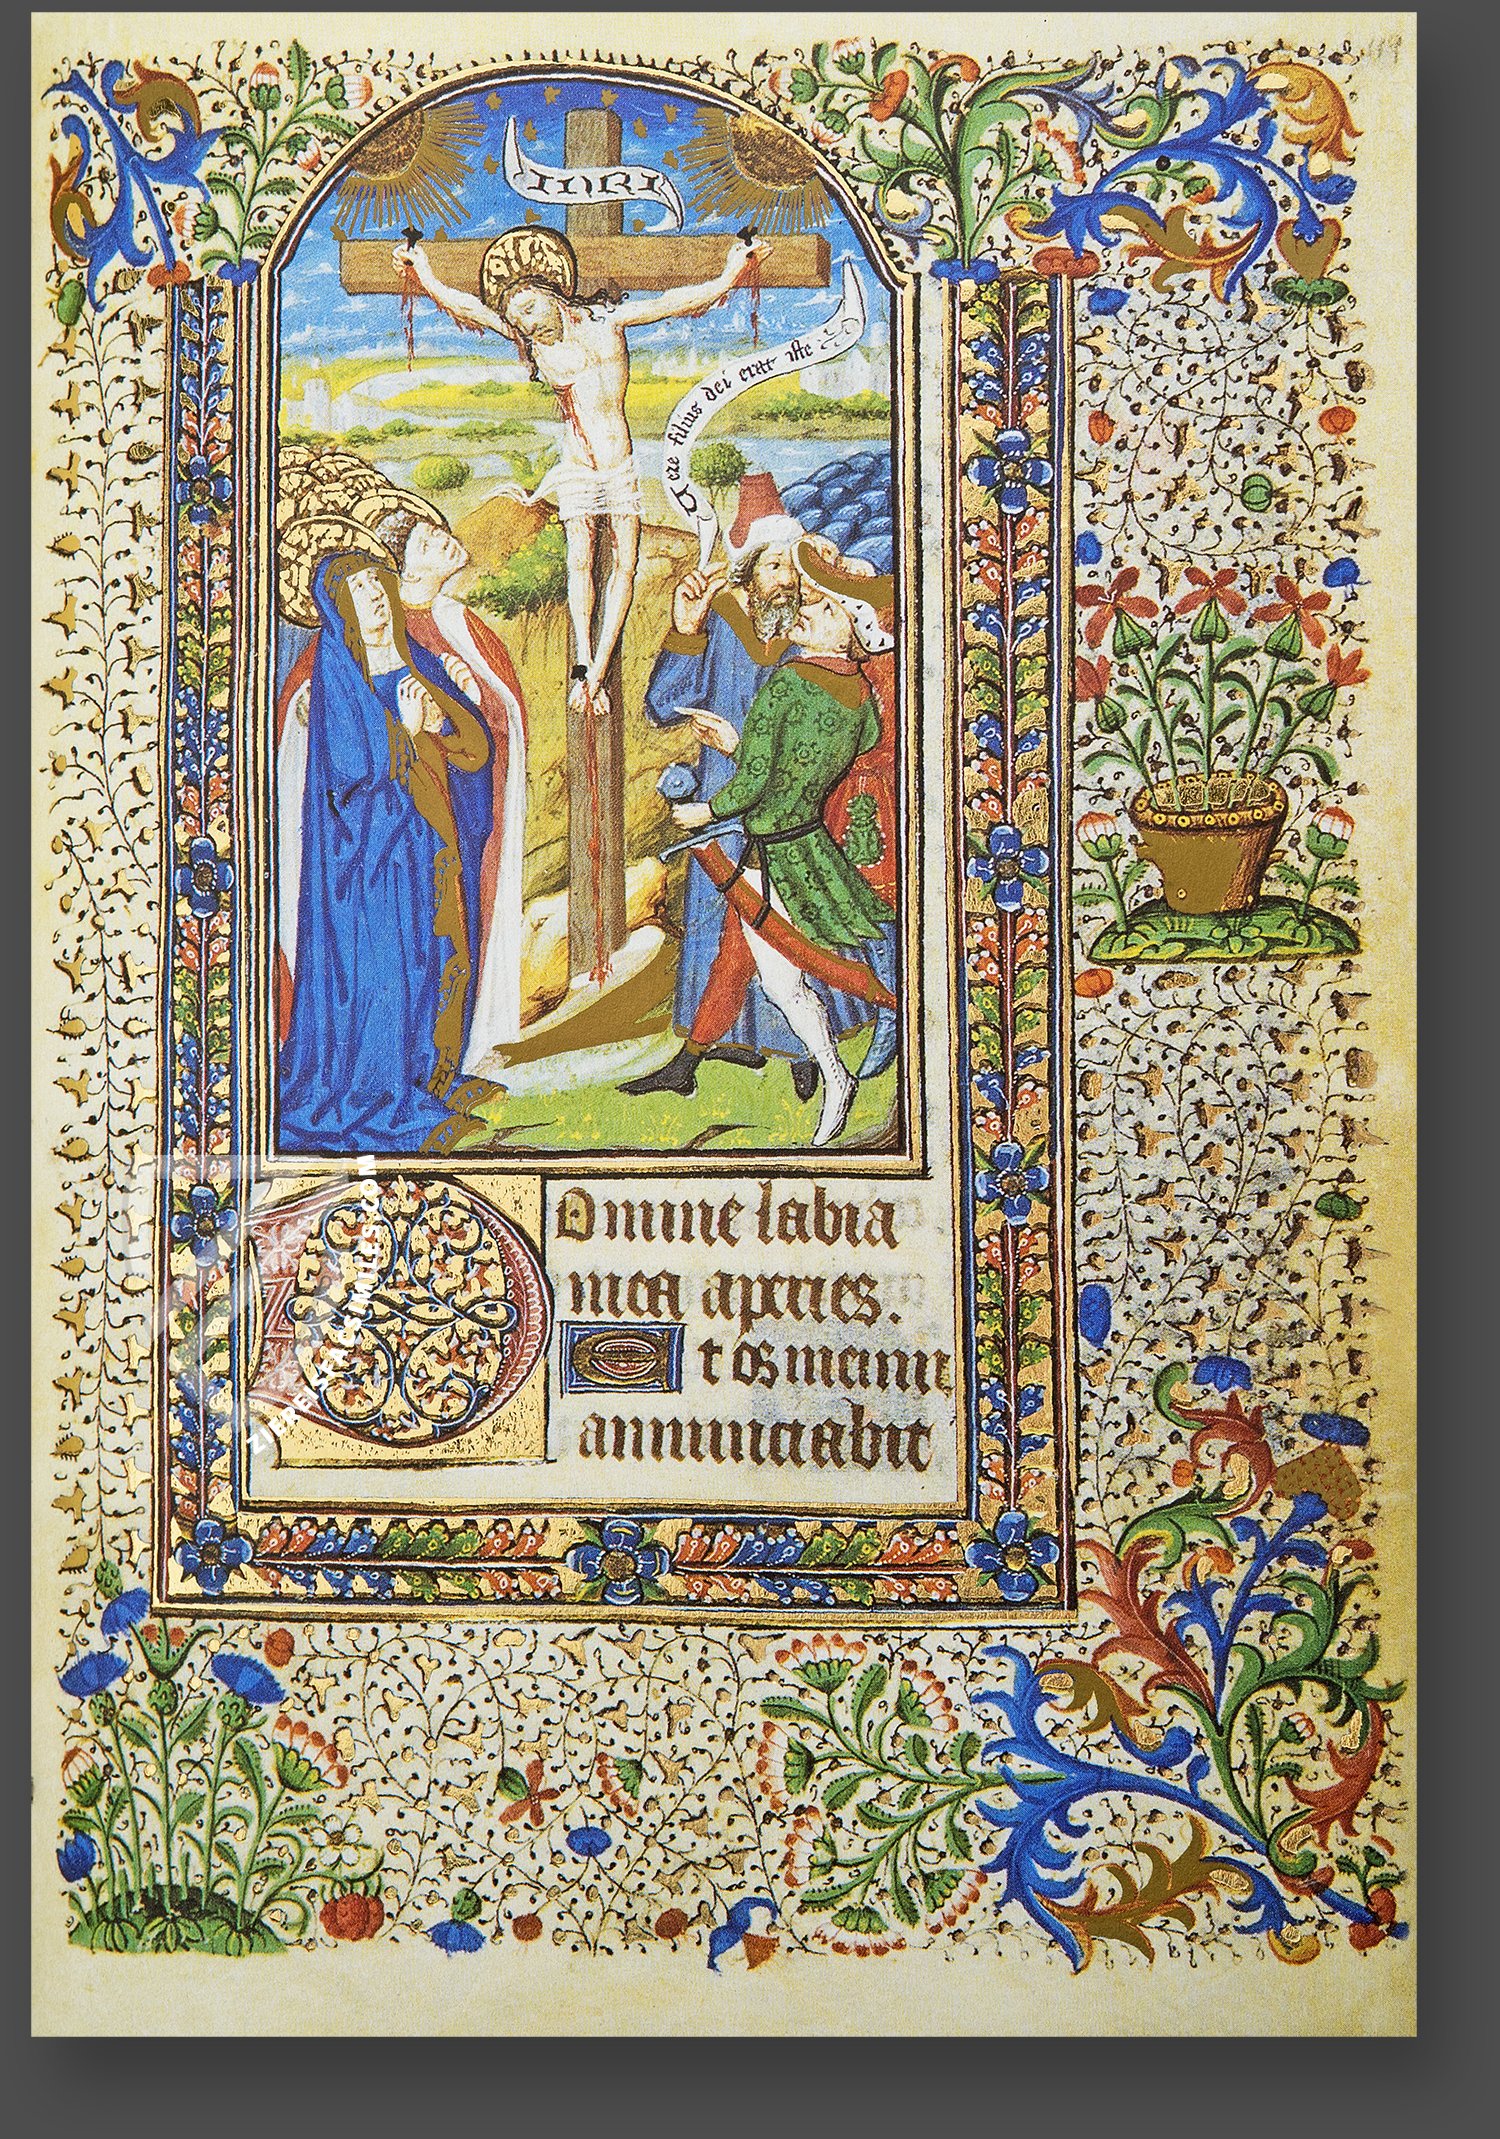 119
INRI
Vere filius dei erat iste
Domine labia
mea aperies.
Et os meum
annunciabit
ZIEREIS FACSIMILES.COM